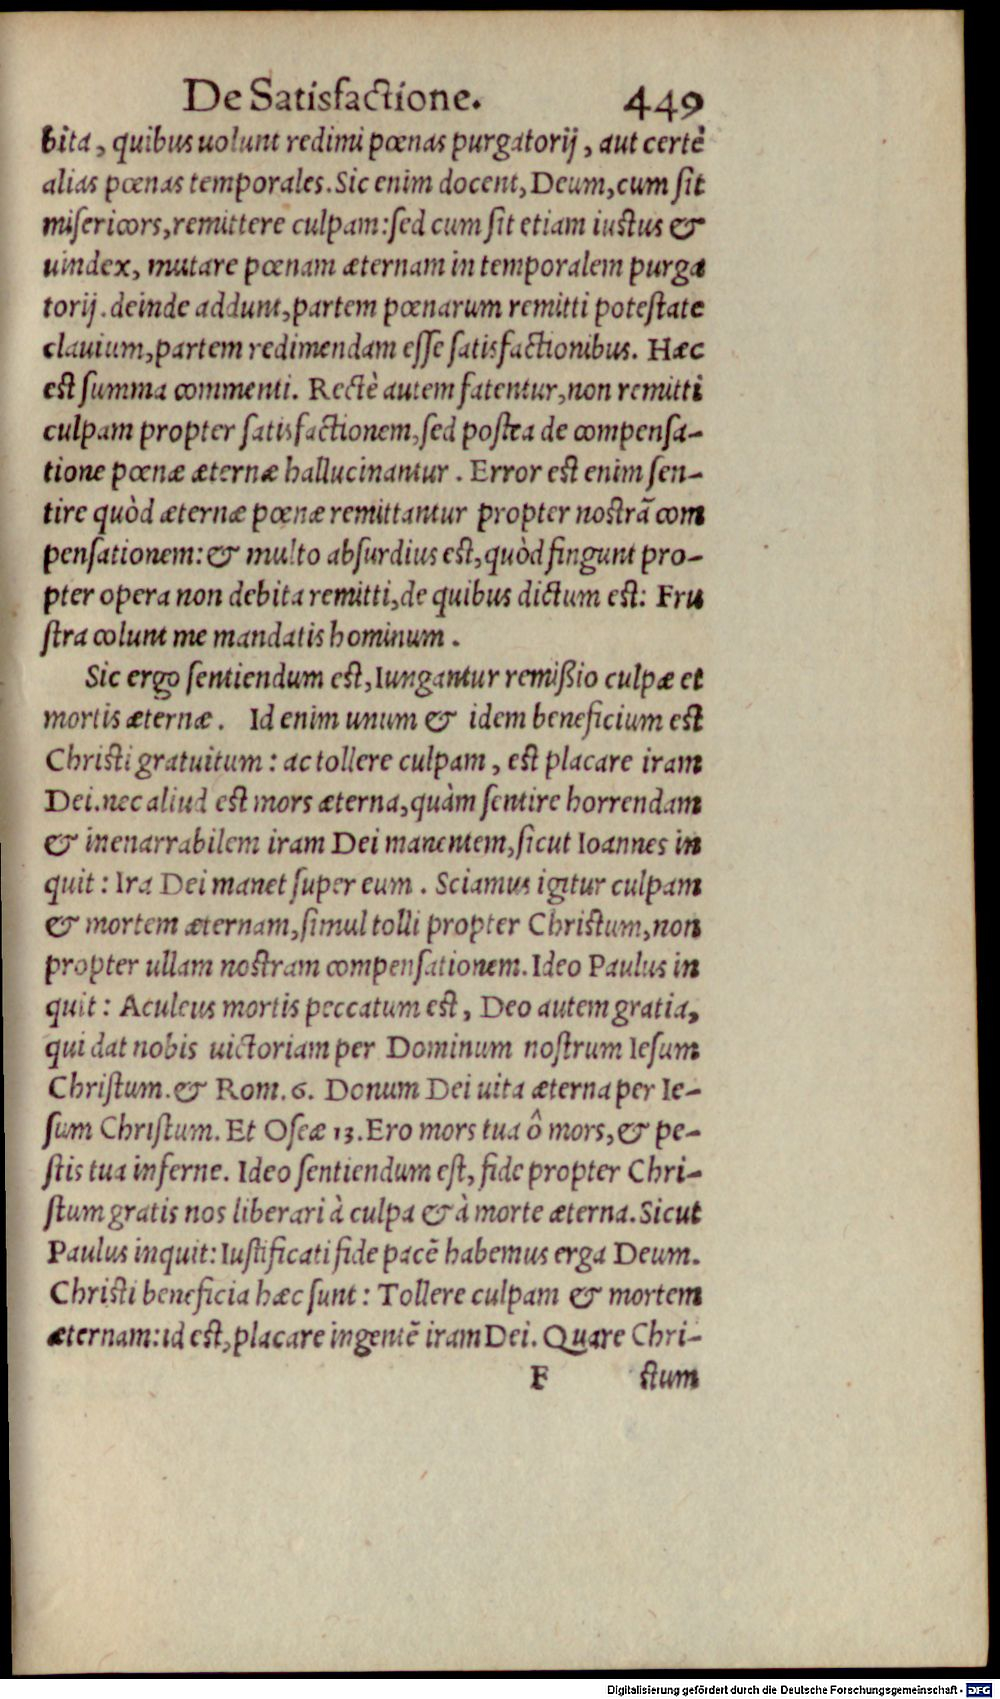 De Satisfactione. 449
bita, quibus uolunt redimi pœnas purgatorij, aut certè
alias pœnas temporales. Sic enim docent, Deum, cum sit
misericors, remittere culpam: sed cum sit etiam iustus &
uindex, mutare pœnam æternam in temporalem purga
torij. deinde addunt, partem pœnarum remitti potestate
clauium, partem redimendam esse satisfactionibus. Hæc
est summa commenti. Rectè autem fatentur, non remitti
culpam propter satisfactionem, sed postea de compensa-
tione pœnæ æternæ hallucinantur. Error est enim sen-
tire quòd æternæ pœnæ remittantur propter nostrã com
pensationem: & multo absurdius est, quòd fingunt pro-
pter opera non debita remitti, de quibus dictum est: Fru
stra colunt me mandatis hominum.
Sic ergo sentiendum est, Iungantur remißio culpæ et
mortis æternæ. Id enim unum & idem beneficium est
Christi gratuitum: ac tollere culpam, est placare iram
Dei. nec aliud est mors æterna, quàm sentire horrendam
& inenarrabilem iram Dei manentem, sicut Ioannes in
quit: Ira Dei manet super eum. Sciamus igitur culpam
& mortem æternam, simul tolli propter Christum, non
propter ullam nostram compensationem. Ideo Paulus in
quit: Aculeus mortis peccatum est, Deo autem gratia,
qui dat nobis uictoriam per Dominum nostrum Iesum
Christum. & Rom. 6. Donum Dei uita æterna per Ie-
sum Christum. Et Oseæ 13. Ero mors tua ô mors, & pe-
stis tua inferne. Ideo sentiendum est, fide propter Chri-
stum gratis nos liberari à culpa & à morte æterna. Sicut
Paulus inquit: Iustificati fide pacẽ habemus erga Deum.
Christi beneficia hæc sunt: Tollere culpam & mortem
æternam: id est, placare ingentẽ iram Dei. Quare Chri-
F stum
Digitalisierung gefördert durch die Deutsche Forschungsgemeinschaft - DFG